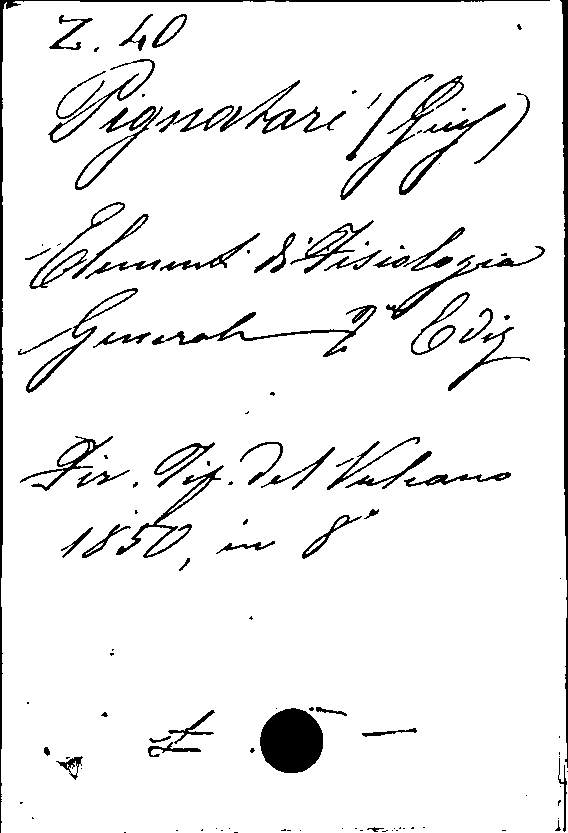 Z. 40
Pignatari (Gius)
Elementi di Fisiologia
Generale 2ª Ediz
Fir. Tip. del Vulcano
1850, in 8°
£ —